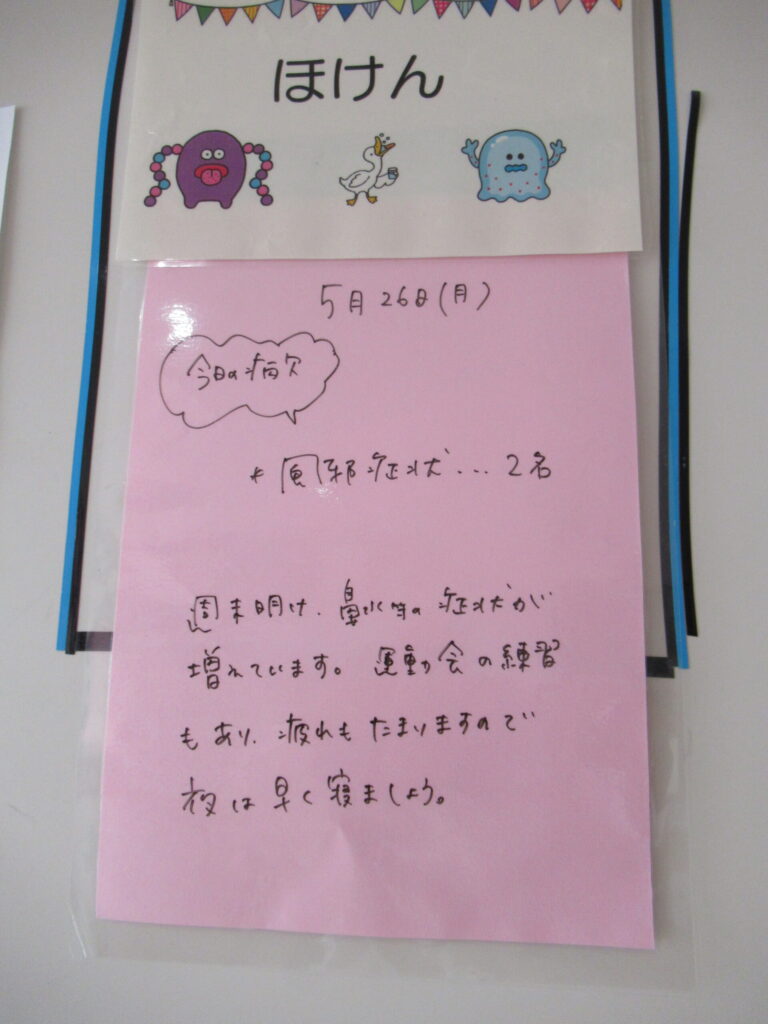 ほけん
5月26日(月)
今日の病欠
* 風邪症状...2名
週末明け、鼻水等の症状が
増れています。運動会の練習
もあり、疲れもたまりますので
夜は早く寝ましょう。